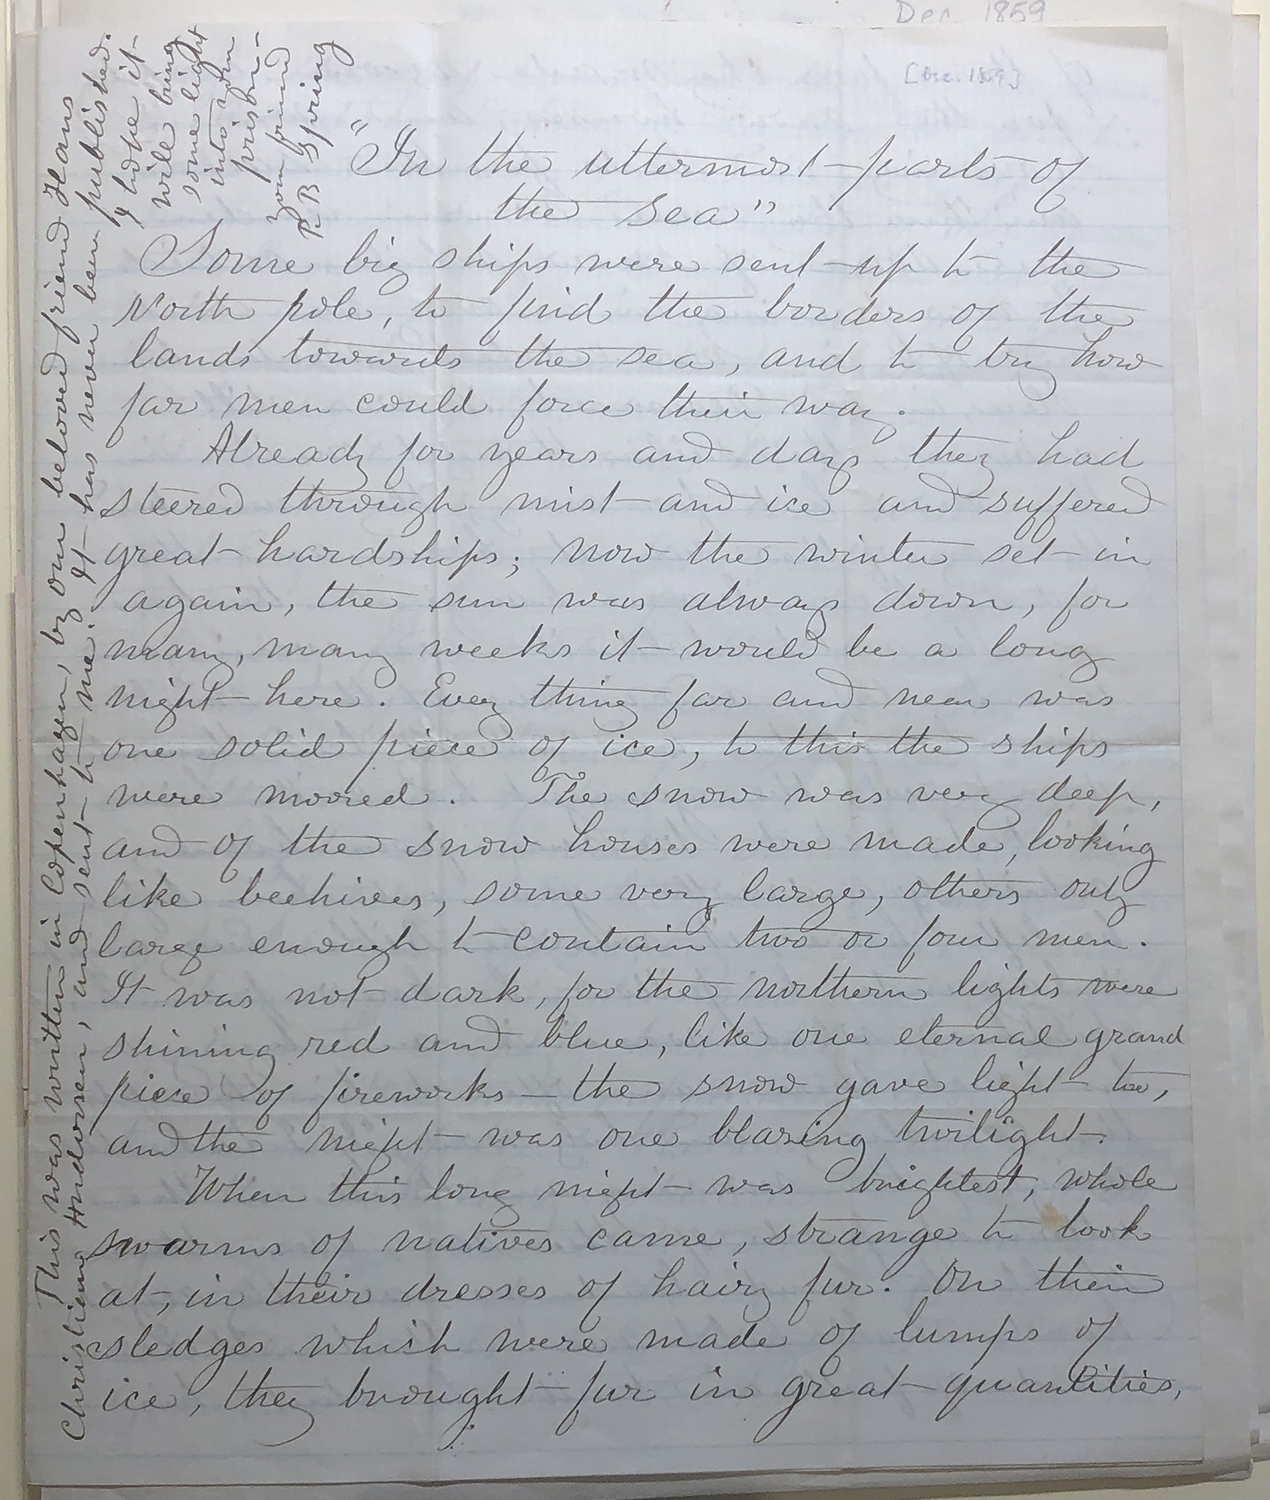 Dec. 1859
[Dec. 1859]
"In the uttermost parts of
the sea"
Some big ships were sent up to the
North pole, to find the borders of the
lands towards the sea, and to try how
far men could force their way.
Already for years and days they had
steered through mist and ice and suffered
great hardships; now the winter set in
again, the sun was always down, for
many, many weeks it would be a long
night here. Every thing far and near was
one solid piece of ice, to this the ships
were moored. The snow was very deep,
and of the snow houses were made, looking
like beehives, some very large, others only
large enough to contain two or four men.
It was not dark, for the northern lights were
shining red and blue, like one eternal grand
piece of fireworks — the snow gave light too,
and the night was one blazing twilight.
When this long night was brightest, whole
swarms of natives came, strange to look
at, in their dresses of hairy fur. On their
sledges which were made of lumps of
ice, they brought fur in great quantities,
This was written in Copenhagen, by our beloved friend Hans
Christiana Andersen, and sent to me. It has never been published.
I hope it
will bring
some light
into your
prison—
your friend
R B Spring